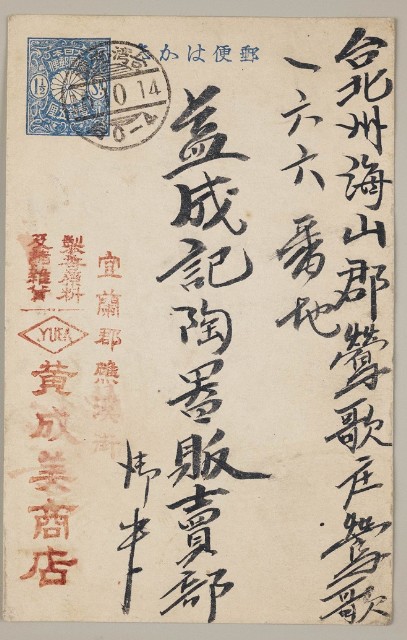 郵便はかき
1½
台北州海山郡鶯歌庄鶯歌
一六六番地
益成記陶器販賣部
御中
宜蘭郡礁溪街
及諸雜貨
YUEA
黄成美商店